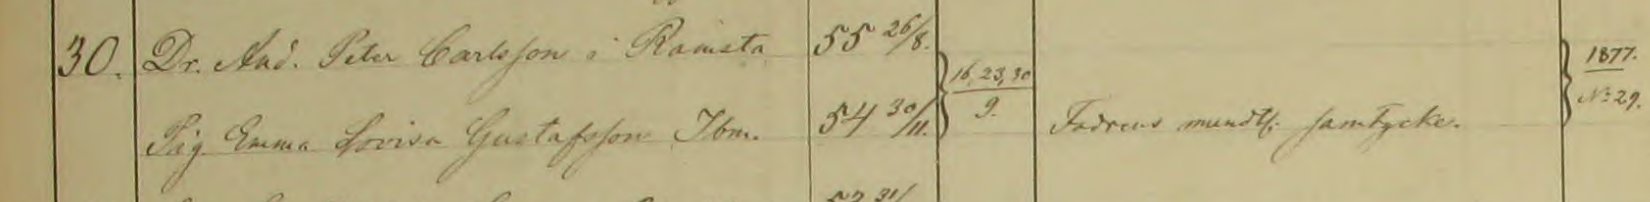 30. Dr. And. Peter Carlsson i Ramsta 55 26/8. 16, 23, 30/9. 1877. No 29.
Pig. Emma Lovisa Gustafsson Ibm. 54 30/11. Fadrens mundtl. samtycke.